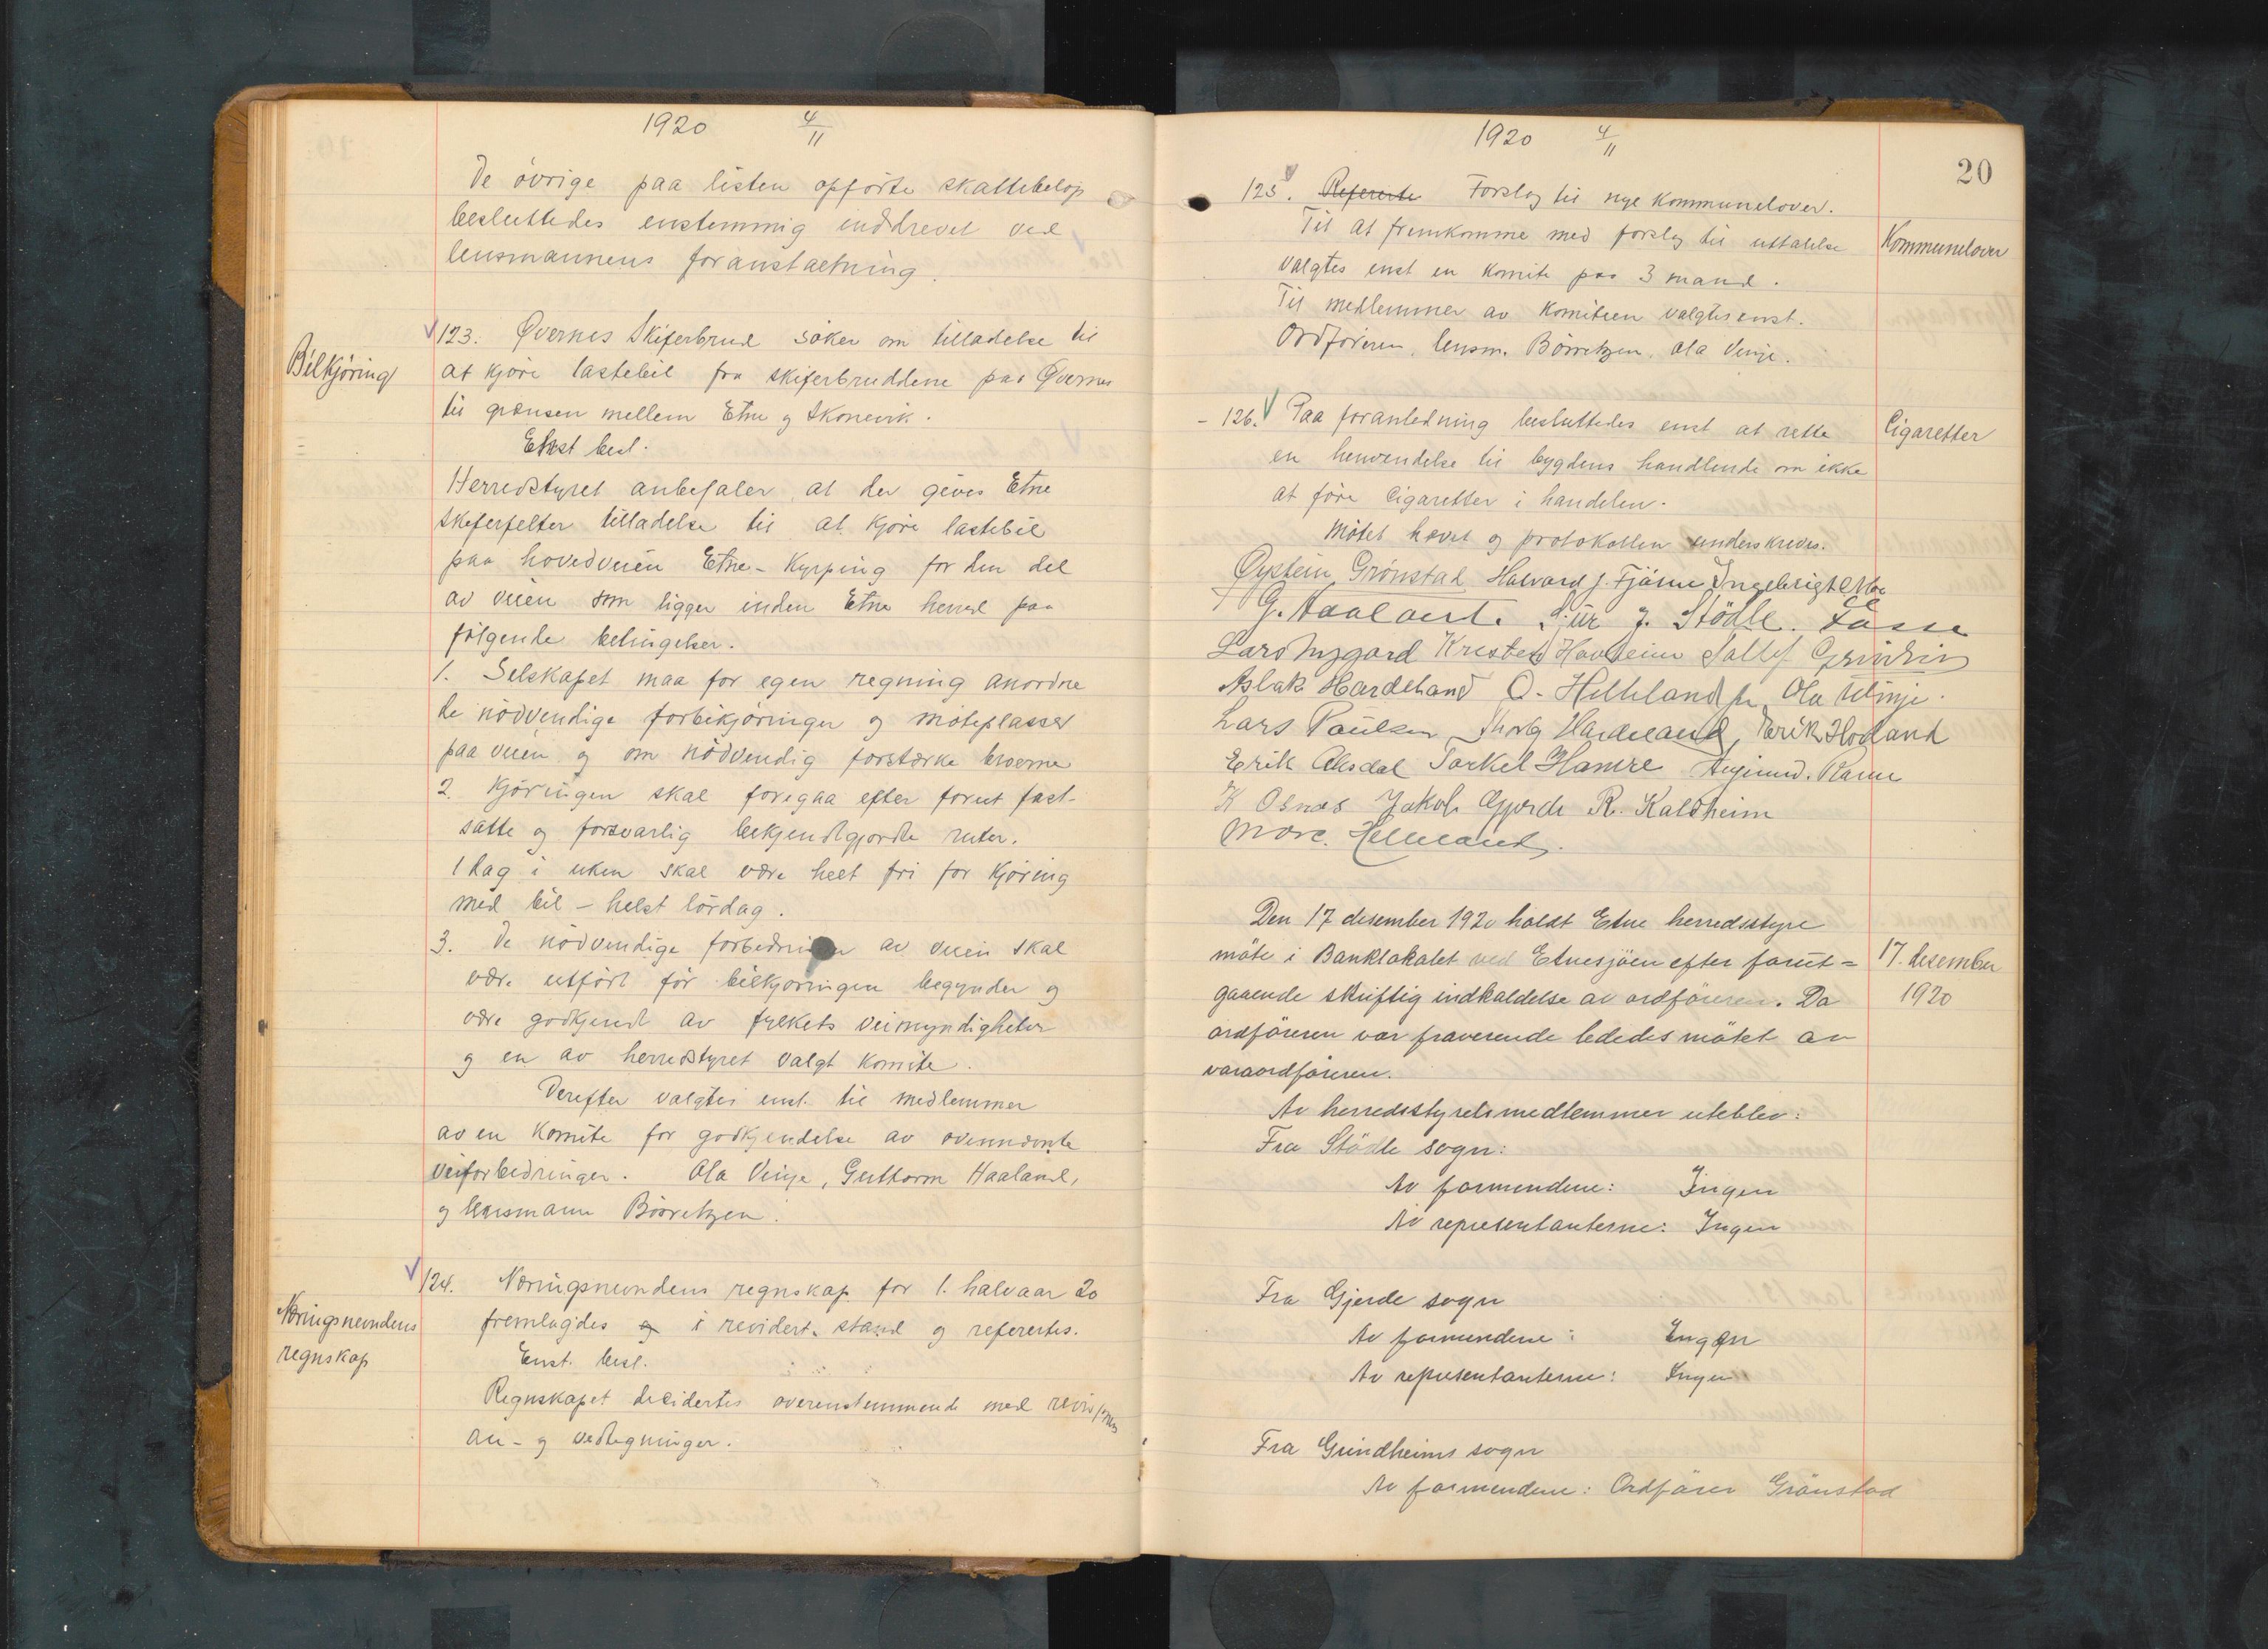 1920 4/11
De övrige paa listen opförte skattebelöp
besluttedes enstemmig inddrevet ved
lensmannens foranstaltning.
Bilkjöring
123. Øvernes Skiferbrud söker om tilladelse til
at kjöre lastebil fra skiferbruddene paa Øvernes
til grænsen mellem Etne og Skonevik.
Enst besl.
Herredstyret anbefaler, at der gives Etne
skiferfelter tilladelse til at kjöre lastebil
paa hovedveien Etne - Kyrping for den del
av veien som ligger inden Etne herred paa
fölgende betingelser.
1. Selskapet maa for egen regning anordne
de nödvendige forbikjöringer og möteplasser
paa veien og om nödvendig forstærke broerne
2. Kjöringen skal foregaa efter forut fast-
satte og forsvarlig bekjendtgjorte ruter.
1 dag i uken skal være helt fri for kjöring
med bil - helst lördag.
3. De nödvendige forbedringer av veien skal
være utfört för bilkjöringen begynder og
være godkjendt av fylkets veimyndigheter
og en av herredstyret valgt komite.
Derefter valgtes enst. til medlemmer
av en komite for godkjendelse av ovennævnte
veiforbedringer. Ola Vinje, Guttorm Haaland,
og lensmann Börretzen.
Næringsnevndens
regnskap
124. Næringsnevndens regnskap for 1. halvaar 20
fremlagdes og i revidert stand og referertes.
Enst. besl.
Regnskapet decidertes overenstemmende med revisors
an- og vedtegninger.
1920 4/11
20
125. Referente Forslag til nye kommunelover.
Til at fremkomme med forslag til uttalelse
Kommunelover
valgtes enst en komite paa 3 mand.
Til medlemmer av komiteen valgtes enst.
Ordföreren, lensm. Börretzen, Ola Vinje.
126. Paa foranledning besluttedes enst at rette
Cigaretter
en henvendelse til bygdens handlende om ikke
at före Cigaretter i handelen.
Mötet hævet og protokollen underskreves.
Øystein Grönstad Halvard J. Fjösne Ingebrigt Moe
G. Haaland. Sjur J. Stödle.
Lars Nygard Kristen Havreim Sallef Grindheim
Aslak Hardeland O. Helleland jr. Ola Vinje.
Lars Paulsen Thorb Hardeland, Erik Holland
Erik Aksdal Torkel Hamre
K Osnes Jakob Gjerde R. Kaldheim
Mons. Helleland.
Den 17 desember 1920 holdt Etne herredsstyre
möte i Banklokalet ved Etnesjöen efter forut=
17. desember
1920
gaaende skriftlig indkaldelse av ordföreren. Da
ordföreren var fraverende lededes mötet av
varaordföreren.
Av herredsstyrets medlemmer uteblev:
Fra Stödle sogn:
Av formendene: Ingen
Av representanterne: Ingen
Fra Gjerde sogn
Av formendene: Ingen
Av representanterne: Ingen
Fra Grindheims sogn
Av formendene: Ordförer Grönstad